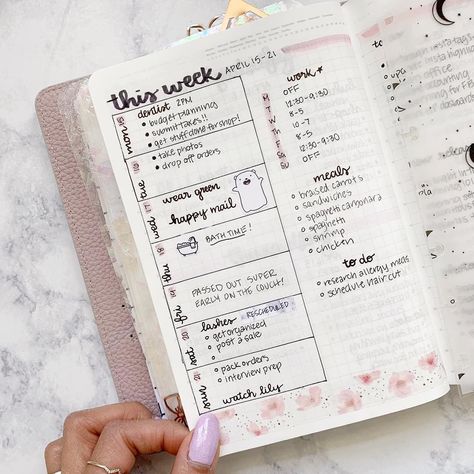 this week APRIL 15-21
mon 15
dentist 2PM
• budget planning
• submit taxes!!
• get stuff done for shop!
tue
• take photos
• drop off orders
wed 17
wear green
happy mail
thu 18
BATH TIME!
fri 19
PASSED OUT SUPER
EARLY ON THE COUCH!
sat 20
lashes RESCHEDULED
• get organized
• post a sale
sun 21
• pack orders
• interview prep
watch lily
work *
M OFF
T 12:30-9:30
W 8-5
T 10-7
F 8-5
Sa 12:30-9:30
Su OFF
meals
• brased carrots
• sandwiches
• spaghetti carbonara
• spaghetti
• shrimp
• chicken
to do
• research allergy meds
• schedule haircut
to